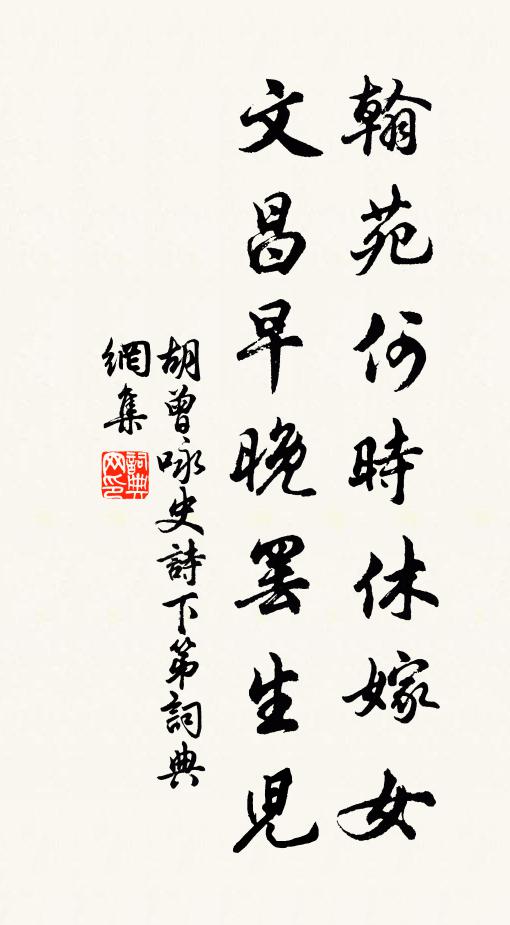 翰苑何時休嫁女
文昌早晚罷生兒
胡曾咏史詩下第詞典
網集
詞典
网印